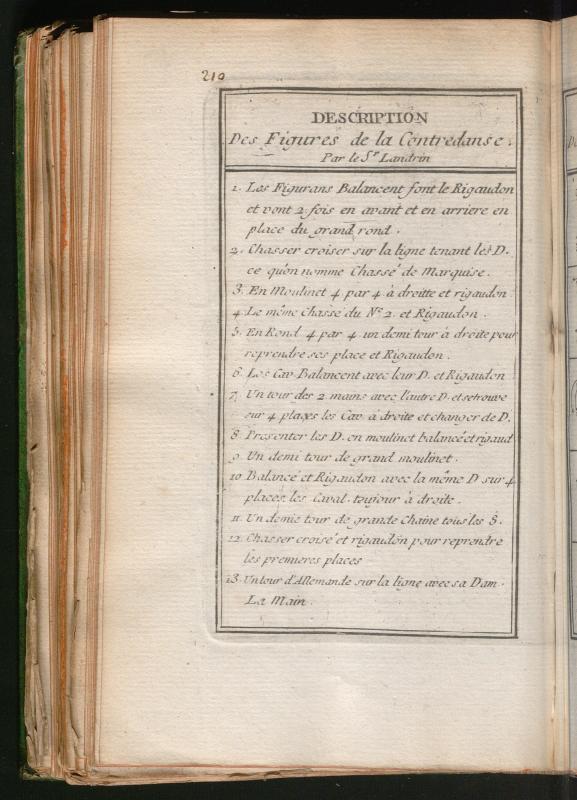 210
DESCRIPTION
Des Figures de la Contredanse.
Par le Sr Landrin
1. Les Figurans Balancent font le Rigaudon
et vont 2 fois en avant et en arriere en
place du grand rond.
2. Chasser croiser sur la ligne tenant les D.
ce qu'on nomme Chassé de Marquise.
3. En Moulinet 4 par 4 à droitte et rigaudon
4. Le même Chassé du No 2. et Rigaudon.
5. En Rond 4 par 4 un demi tour à droite pour
reprendre ses place et Rigaudon.
6. Les Cav Balancent avec leur D. et Rigaudon
7. Un tour des 2 mains avec l'autre D. et se trouve
sur 4 places les Cav à droite et changer de D.
8. Presenter les D. en moulinet balancé et rigaud
9. Un demi tour de grand moulinet.
10 Balancé et Rigaudon avec la même D sur 4
places les Caval. toujour à droite.
11. Un demie tour de grande Chaine tous les 8.
12. Chasser croisé et rigaudon pour reprendre
les premieres places
13. Un tour d'Allemande sur la ligne avec sa Dam.
La Main.